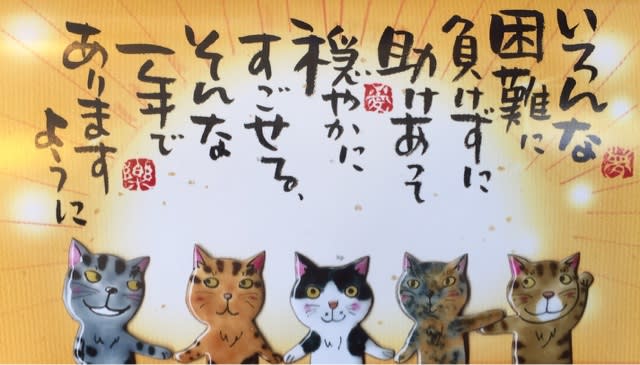 いろんな
困難に
負けずに
助けあって
穏やかに
すごせる、
そんな
一年で
あります
ように
夢
愛
樂